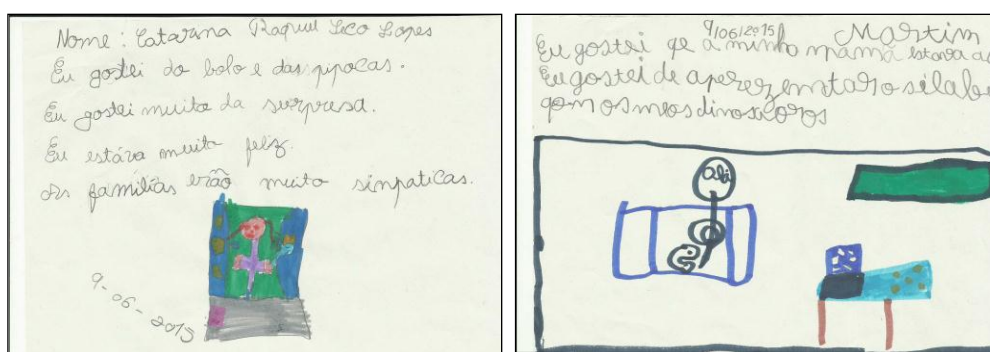 Nome : Catarina Raquel Lico Lopes
Eu gostei do bolo e das pipocas.
Eu gostei muito da surpresa.
Eu estáva muito feliz.
As famílias erão muito simpaticas.
9-06-2015
9/06/2015 Martim
Eu gostei qe a minha mamã estava a
Eu gostei de aperezemtaro silabi
qom os meos dinosaoros